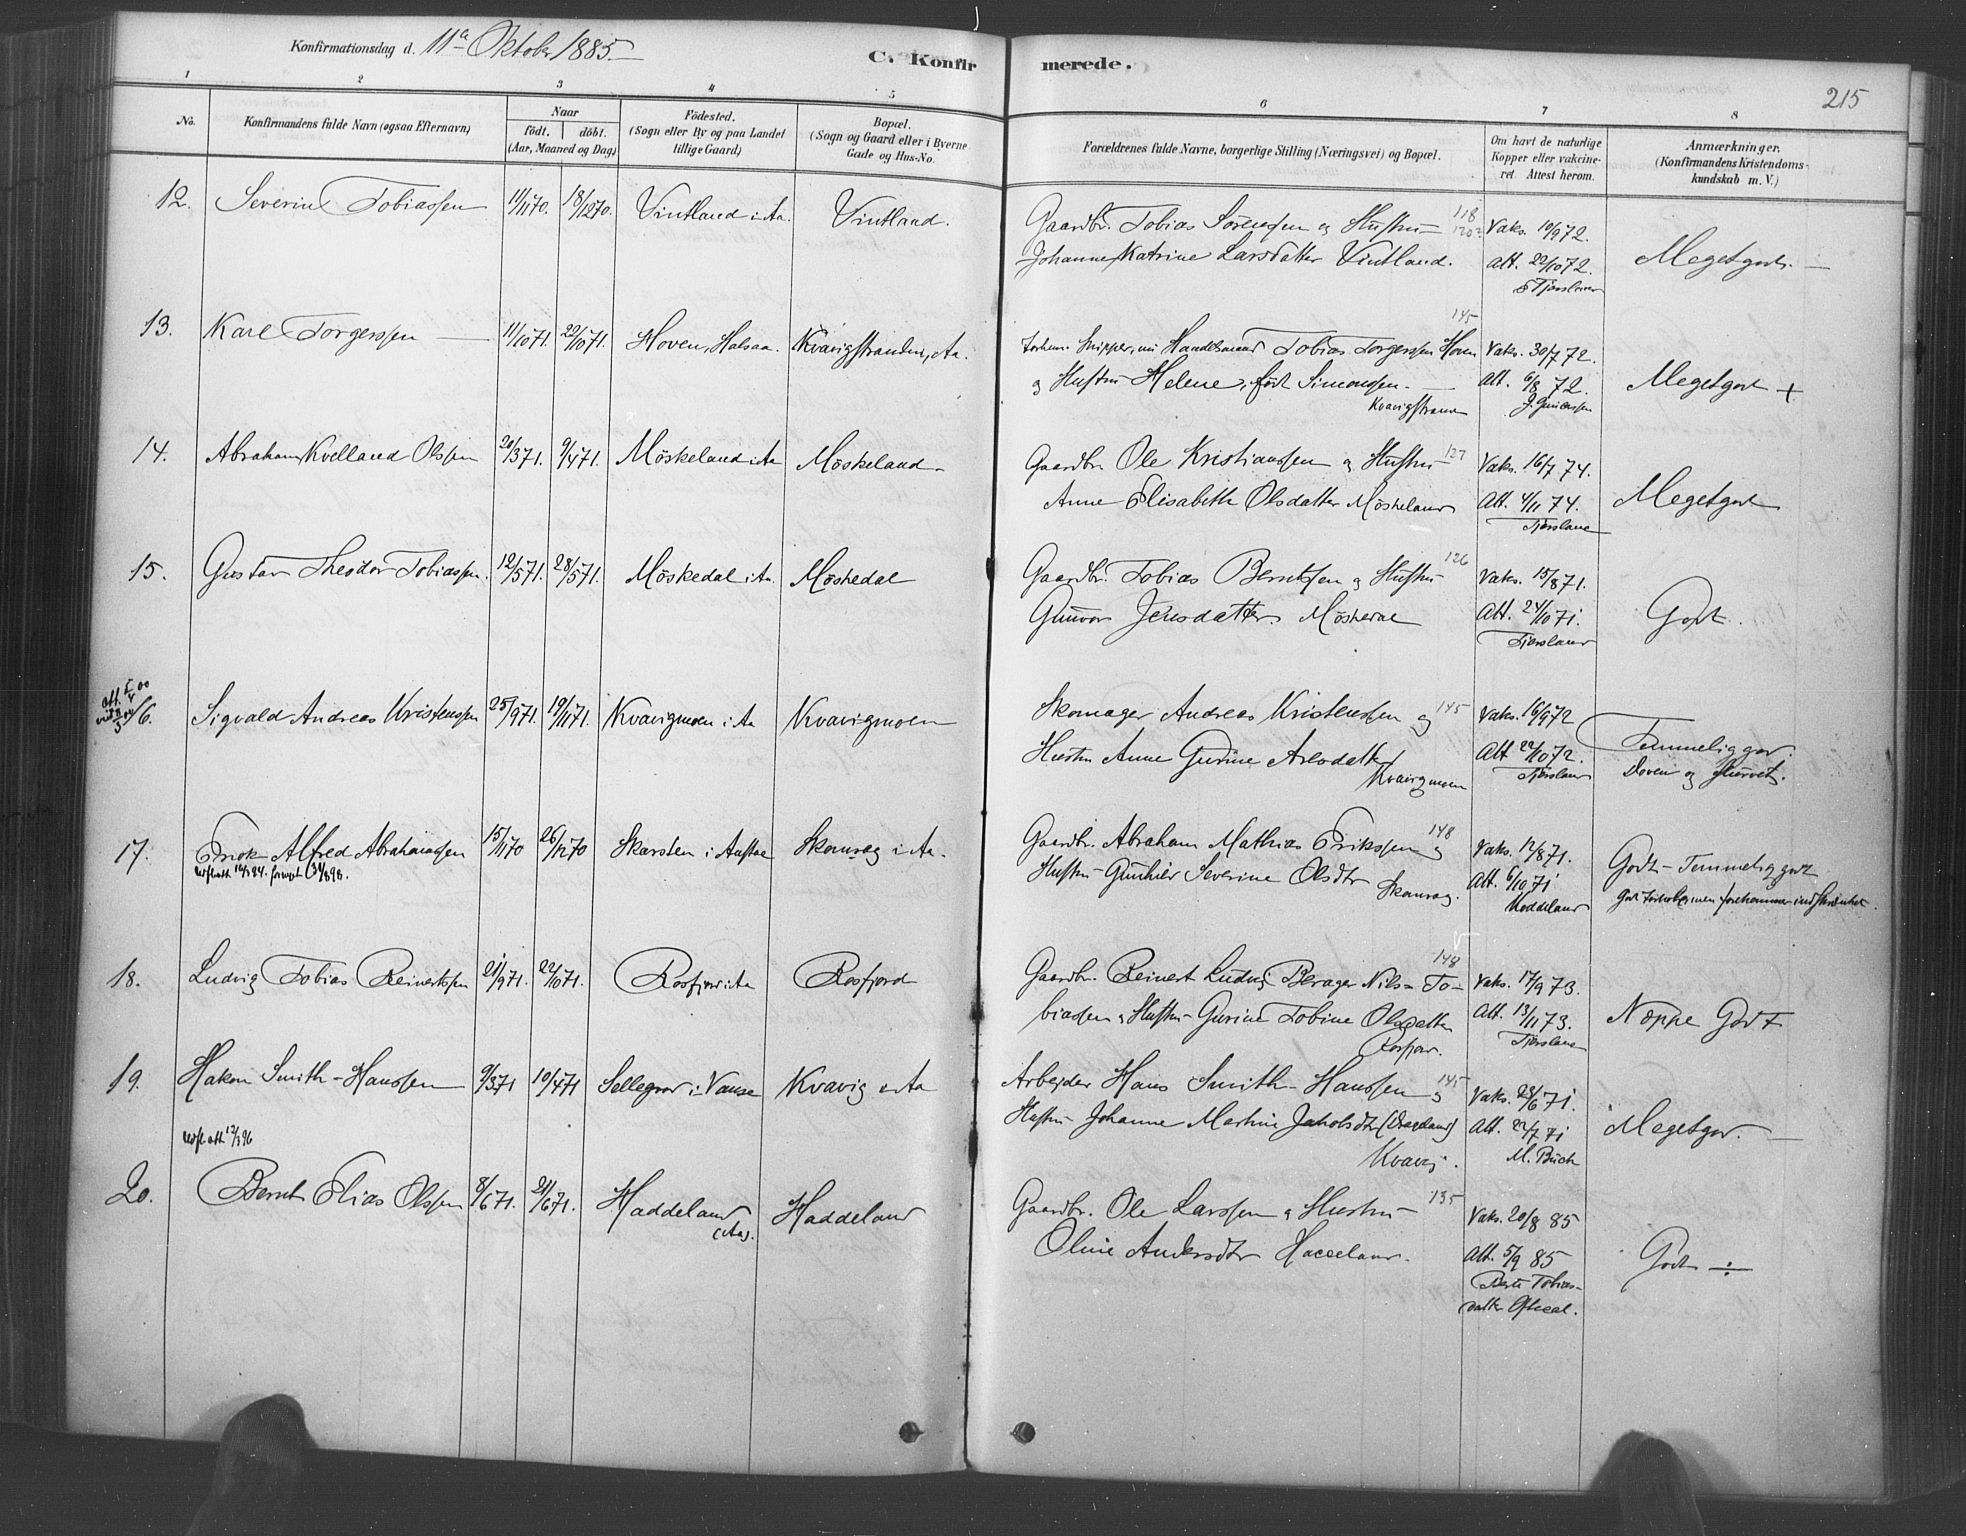 Konfirmationsdag d. 11te Oktober 1885.
C. Konfirmerede.
215
1 2 3 4 5 6 7 8
No.
Konfirmandens fulde Navn (ogsaa Efternavn)
Naar
födt. döbt.
(Aar, Maaned og Dag)
Födested.
(Sogn eller By og paa Landet
tillige Gaard)
Bopæl.
(Sogn og Gaard eller i Byerne
Gade og Hus-No.
Forældrenes fulde Navne, borgerlige Stilling (Næringsvei) og Bopæl.
Om havt de naturlige
Kopper eller vakcine-
ret Attest herom.
Anmærkninger.
(Konfirmandens Kristendoms-
kundskab m. V.)
12. Severin Tobiassen 11/11 70. 18/12 70. Vintland i Aa. Vintland.
Gaardbr. Tobias Sørensen og Hustru 118
Johanne Katrine Larsdatter Vintland.
Vaks. 10/9 72.
Att. 22/10 72.
Meget godt. —
13. Karl Torgerssen — 11/10 71. 22/10 71. Hoven, Halsaa. Kvavigstranden, Aa.
145
forhen. Skipper, nu Handelsmand Tobias Torgerssen Hoven
og Hustru Helene, født Simonssen. —
Kvavigstrand
Vaks. 30/7 72.
Att. 6/8 72.
Meget godt +
14. Abraham Kvelland Olssen 20/3 71. 9/4 71. Möskeland i Aa Möskeland.
Gaardbr. Ole Kristianssen og Hustru 127
Anne Elisabeth Olsdatter Möskeland
Vaks. 16/7 74.
Att. 4/11 74.
Tjörsland
Meget godt
15. Gustav Theodor Tobiassen. 12/5 71. 28/5 71. Möskedal i Aa. Möskedal
Gaardbr. Tobias Berntssen og Hustru 126
Gunvor Jensdatter Möskedal
Vaks. 15/8 71.
Att. 24/10 71.
Tjörsland
Godt.
16. Sigvald Andreas Kristenssen 25/9 71. 19/11 71. Kvavigmoen i Aa Kvavigmoen
Skomager Andreas Kristenssen og 145
Hustru Anne Gurine Arosdatter
Kvavigmoen
Vaks. 16/9 72
Att 22/10 72.
Tjörsland
Temmelig god.
Doven og
17. Enok Alfred Abrahamssen 15/11 70 26/12 70 Skarsten i Austad Skomrag i Aa.
Gaardbr. Abraham Mathias Erikssen og 148
Hustru Gunhild Severine Olsdtr Skomrag.
Vaks. 12/8 71.
Att. 6/10 71
Moddeland
Godt – Temmelig godt
18. Ludvig Tobias Reinertssen 21/9 71. 22/10 71. Rosfjord i Aa Rosfjord
148
Gaardbr. Reinert Ludvig Berager Nils – To-
biassen og Hustru Gurine Tobine Olsdatter
Rosfjord.
Vaks. 17/9 73.
Att. 13/11 73.
Tjörsland
Næppe Godt
19. Hakon Smith-Hanssen 9/3 71 10/4 71 Sellegrod i Vanse Kvavig i Aa
Udfl. att 12/3 96
Arbejder Hans Smith-Hanssen og 145
Hustru Johanne Martine Jakobsdtr (Drageland)
Kvavig.
Vaks. 23/6 71.
Att. 22/7 71
M. Buch
Meget god. —
20. Bernt Elias Olssen 8/6 71. 21/6 71. Haddeland Haddeland
(i Aa).
Gaardbr. Ole Larssen og Hustru 135
Oline Andersdtr Haddeland.
Vaks. 20/8 85
Att. 5/9 85
Berte Tobias-
datter Oftedal.
Godt ÷